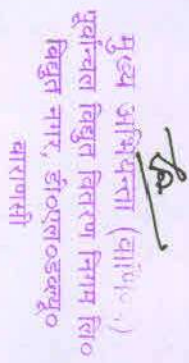 मुख्य अभियन्ता (वाणि०)
पूर्वान्चल विद्युत वितरण निगम लि०
विद्युत नगर, डी०एल०डब्ल्यू०
वाराणसी